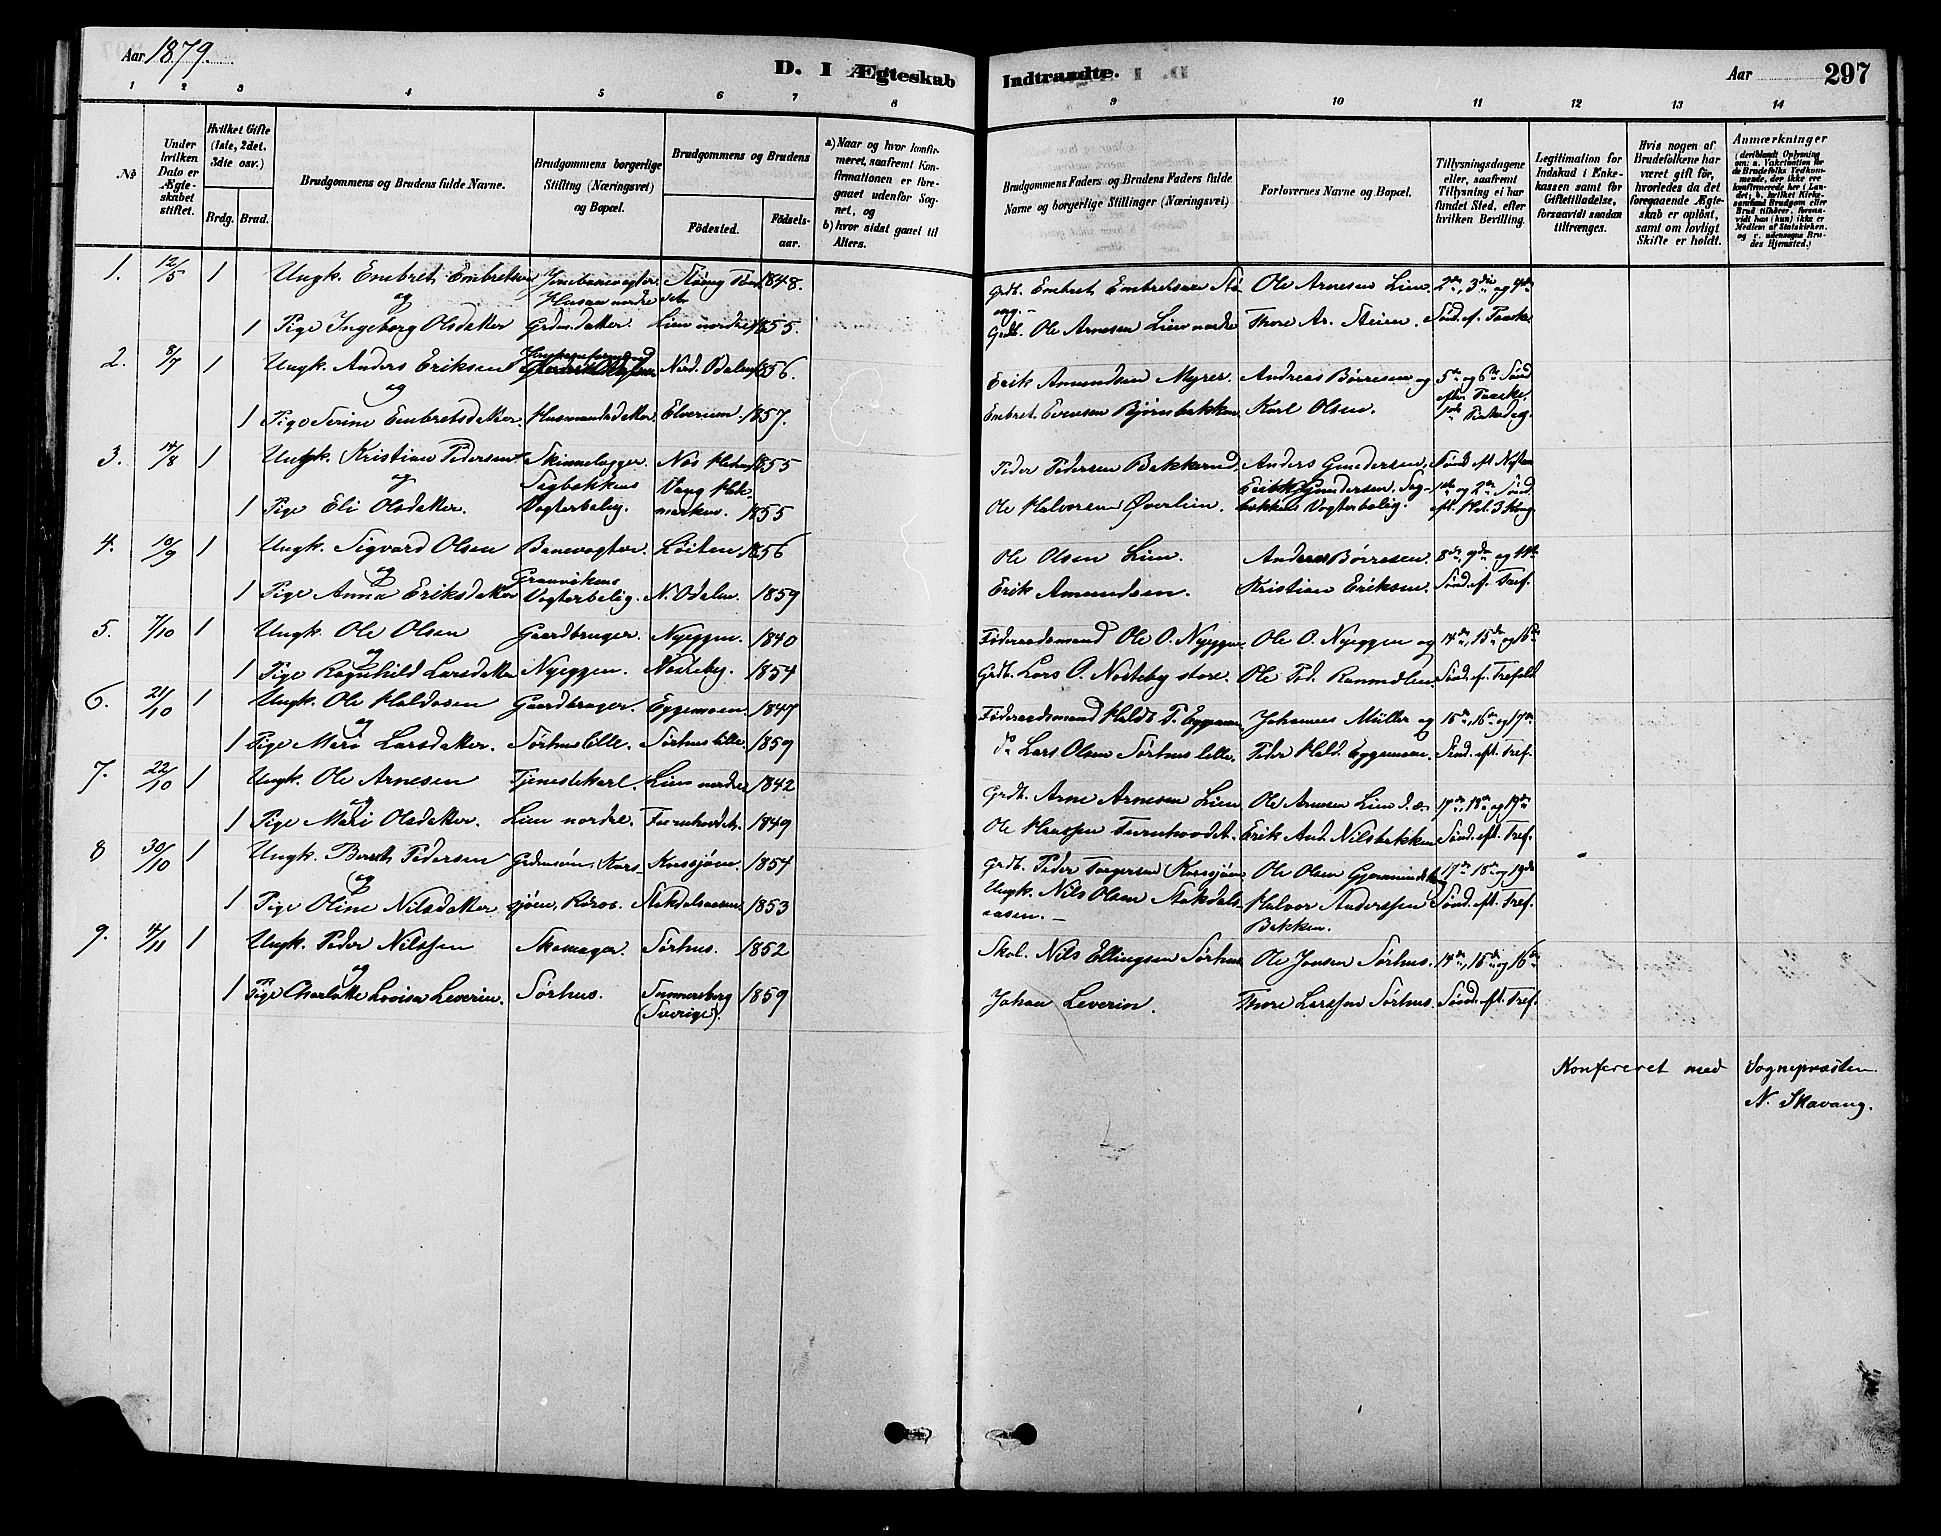 Aar 1879.
D. I Ægteskab Indtraadte.
Aar 297
1 2 3 4 5 6 7 8 9 10 11 12 13 14
No
Under hvilken Dato er Ægteskabet stiftet.
Hvilket Gifte (1ste, 2det, 3die osv.)
Brdg. Brud.
Brudgommens og Brudens fulde Navne.
Brudgommens borgerlige Stilling (Næringsvei) og Bopæl.
Brudgommens og Brudens
Fødested.
Fødselsaar.
a) Naar og hvor konfirmeret, saafremt Konfirmationen er foregaaet udenfor Sognet, og
b) hvor sidst gaaet til Alters.
Brudgommens Faders og Brudens Faders fulde Navne og borgerlige Stillinger (Næringsvei)
Forlovernes Navne og Bopæl.
Tillysningsdagene eller, saafremt Tillysning ei har fundet Sted, efter hvilken Bevilling.
Legitimation for Indskud i Enkekassen samt for Giftetilladelse, forsaavidt saadan tiltrænges.
Hvis nogen af Brudefolkene har været gift før, hvorledes da det foregaaende Ægteskab er opløst, samt om lovligt Skifte er holdt.
Anmærkninger
1. 12/5 1 Ungk. Embret Embretsen Jernbanevogter 1848. Grdb. Embret Embretsen Ole Arnesen Lien 2den, 3die og 4de
og Husaas nordre
1 Pige Ingeborg Olsdatter Grdm.datter. Lien nordre 1855. Grdb. Ole Arnesen Lien nordre Thore Ar. Steien. Sønd. ef. Paaske
2. 8/7 1 Ungk. Anders Eriksen Nord. Odalen 1856. Erik Amundsen Myrer. Andreas Børresen og 5te og 6te Sønd
og efter Paaske,
1 Pige Serine Embretsdatter. Husmandsdatter. Elverum. 1857. Embret Evensen Bjørnbakken Karl Olsen. 1ste Pintsedag.
3. 14/8 1 Ungk. Kristian Pedersen Skinnelægger. Næs Hedem. 1855 Peder Pedersen Bakkerud Anders Gundersen,
og Sagbakkens Vang Hedemarken. Erik Gundersen. Sagbakkens Vogterbolig.
1 Pige Eli Olsdatter. Vogterbolig. 1855 Ole Halvorsen Øverlien.
4. 10/9 1 Ungk. Sigvard Olsen Banevogter Løiten. 1856 Ole Olsen Lien. Andreas Børresen. 8de, 9de og
og Granvikens
1 Pige Anna Eriksdatter Vogterbolig. N. Odalen. 1859 Erik Amundsen. Kristian Eriksen. Sønd. ef. Tref.
5. 7/10 1 Ungk. Ole Olsen Gaardbruger. Nyeggen. 1840 Føderaadsmand Ole O. Nyeggen Ole O. Nyeggen og 14de, 15de og 16de
og
1 Pige Ragnhild Larsdatter Nyeggen. Nosteby. 1854 Grdb. Lars O. Nosteby store. Ole Ped. Sønd. ef. Trefold
6. 21/10 1 Ungk. Ole Haldosen Gaardbruger. Eggemoen 1847 Føderaadsmand Hald. P. Eggemoen Johannes Müller og 15de, 16de og 17de
og
1 Pige Mari Larsdatter. Sørhus lille. Sørhus lille. 1859 do Lars Olsen Sørhus lille. Peder Hald. Eggemoen. Sønd. eft. Tref.
7. 22/10 1 Ungk. Ole Arnesen Tjenestekarl. Lien nordre 1842 Grdb. Arne Arnesen Lien Ole Arnesen Lien d. æ. 17de, 18de og 19de
og
1 Pige Mari Olsdatter. Lien nordre. Furuhovdet. 1849 Ole Hanssen Furuhovdet. Erik And. Nilsbakken Sønd. eft. Tref.
8 30/10 1 Ungk. Bernt Pedersen Grdm.søn, Kors- Korssjøen. 1854 Grdb. Peder Torgersen Korssjøen Ole Olsen 17de, 18de og 19de
og
1 Pige Oline Nilsdatter sjøen, Røros. Stokdalsaasen 1853 Ungk. Nils Olsen Stokdals- Halvor Anderssen Sønd. eft. Tref.
aasen. — Bakken.
9. 4/11 1 Ungk. Peder Nilssen Skomager. Sørhus. 1852 Skol. Nils Ellingsen Sørhus Ole Jonsen Sørhus. 14de, 15de og 16de
og
1 Pige Charlotte Lovisa Leverin. Sørhus. Sunnersberg 1859 Johan Leverin. Thore Larssen Sørhus. Sønd. eft. Tref.
(Sverige).
Konfereret med Sognepræsten
N. Skavang.